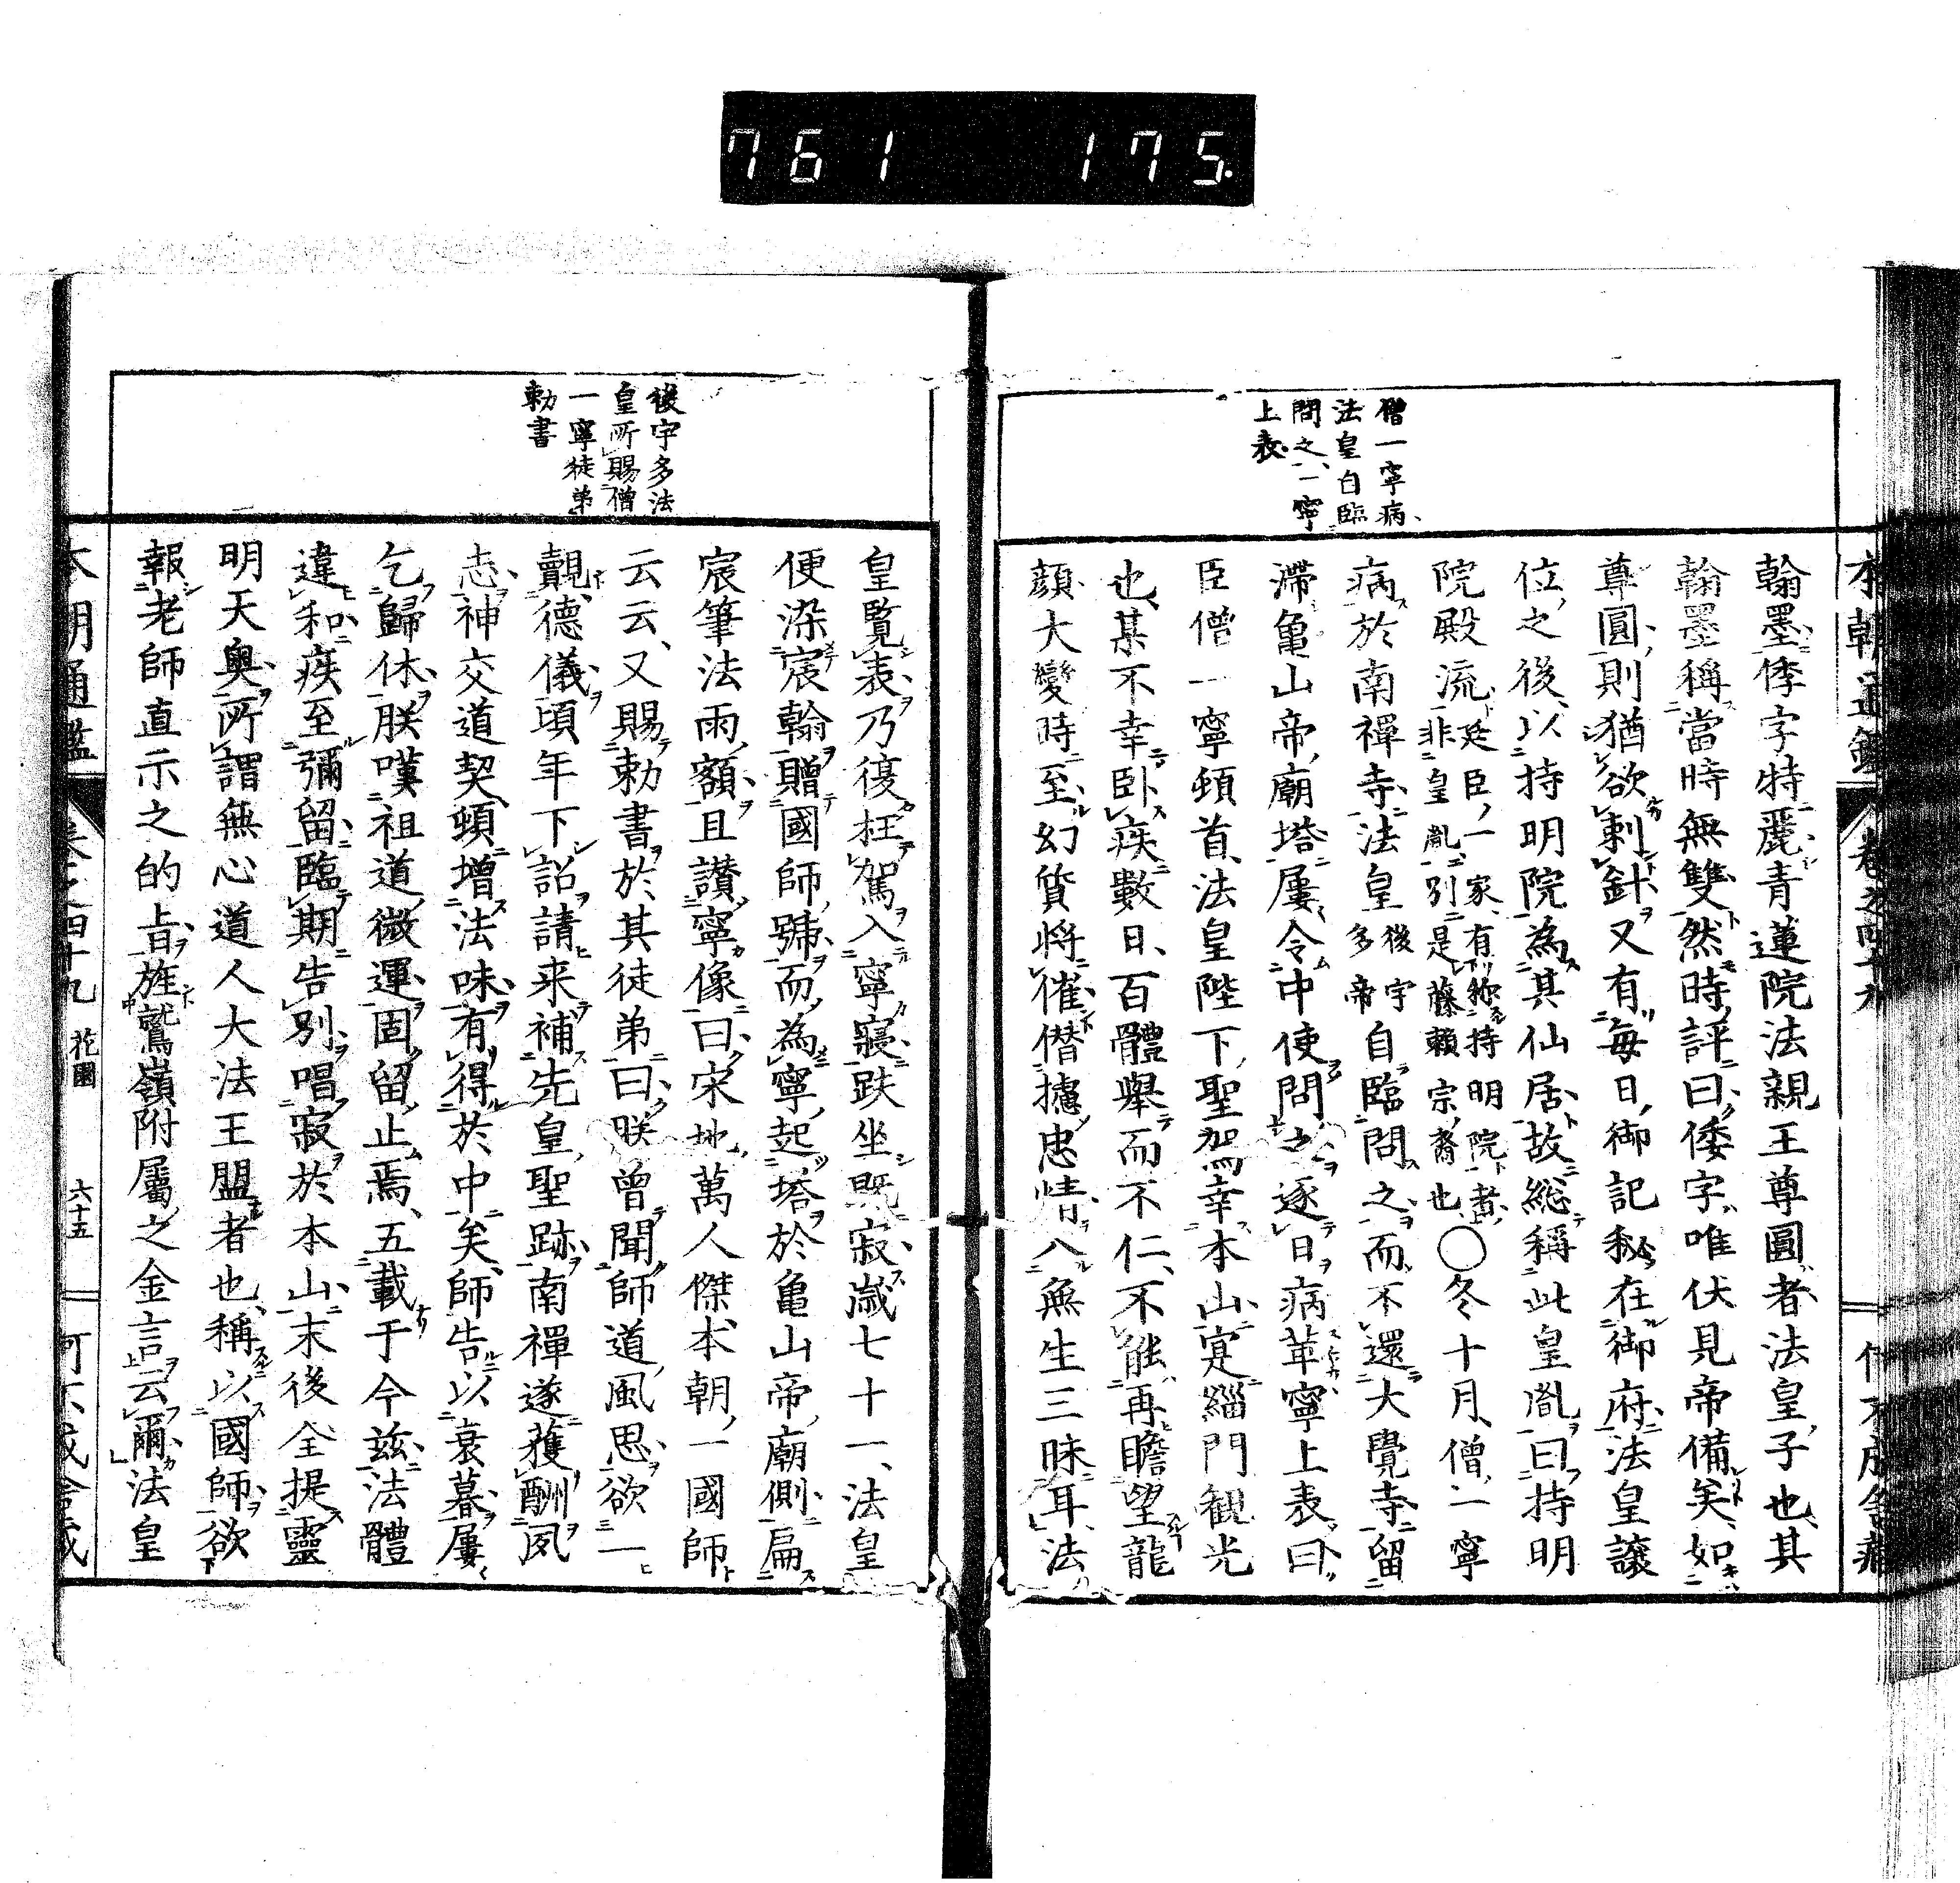 761 175.
本朝通鑑 卷之四十九
僧一寧病、
法皇自臨
問之、一寧
上表
翰墨倭字特麗青蓮院法親王尊圓者法皇子也其
翰墨稱當時無雙然時評曰倭字唯伏見帝備矣如
尊圓則猶欲刺針又有每日御記秘在御府法皇讓
位之後以持明院為其仙居故総稱此皇胤曰持明
院殿流廷臣一家有称持明院者
非皇胤別是藤賴宗裔也○冬十月僧一寧
病於南禪寺法皇後宇
多帝自臨問之而不還大覺寺留
滯亀山帝廟塔屢令中使問之逐日病革寧上表曰
臣僧一寧頓首法皇陛下聖駕幸本山寔緇門観光
也某不幸卧疾數日百體舉而不仁不能再瞻望龍
顔大變時至幻質将催僣攄忠情八無生三昧耳法
後宇多法
皇所賜僧
一寧徒弟
勅書
皇覧表乃復枉駕入寧寢趺坐既寂歳七十一法皇
便染宸翰贈國師號而為寧起塔於亀山帝廟側扁
宸筆法雨額且讃寧像曰宋地萬人傑本朝一國師
云云又賜勅書於其徒弟曰朕曾聞師道風思欲一
覿德儀頃年下詔請来補先皇聖跡南禪遂獲酬夙
志神交道契頓增法味有得於中矣師告以衰暮屢
乞歸休朕嘆祖道微運固留止焉五載于今茲法體
違和疾至彌留臨期告別唱寂於本山末後全提靈
明天奥所謂無心道人大法王盟者也稱以國師欲
報老師直示之的旨旌鷲嶺附屬之金言云爾法皇
本朝通鑑 卷之四十九 花園 六十五